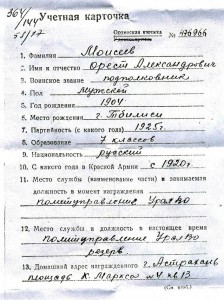 Учетная карточка
Орденская книжка
№ 476966
1. Фамилия Моисеев
2. Имя и отчество Орест Александрович
3. Воинское звание подполковник
4. Пол мужской
5. Год рождения 1904
6. Место рождения г. Тбилиси
7. Партийность (с какого года) 1925 г.
8. Образование 7 классов
9. Национальность русский
10. С какого года в Красной Армии с 1920 г.
11. Место службы (наименование части) и занимаемая
должность в момент награждения
политуправление УралВО
12. Место службы и должность в настоящее время
Политуправление УралВО
резерв
13. Домашний адрес награжденного г. Астрахань
площадь К. Маркса № 4 кв 13